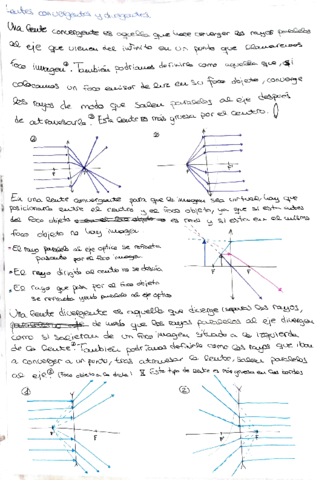 Lentes convergentes y divergentes
Una lente convergente es aquella que hace converger los rayos paralelos
al eje que vienen del infinito en un punto que llamaremos
foco imagen. También podríamos definirla como aquella que, si
colocamos un foco emisor de luz en su foco objeto, converge
los rayos de modo que salen paralelos al eje después
de atravesarla. Esta lente es más gruesa por el centro.
En una lente convergente para que la imagen sea virtual hay que
posicionarla entre el centro y el foco objeto, ya que si está antes
del foco objeto es real y si está en el mismo
foco objeto no hay imagen
• El rayo paralelo al eje óptico se refracta
pasando por el foco imagen
• El rayo dirigido al centro no se desvía
• El rayo que pasa por el foco objeto
se refracta paralelo al eje óptico
Una lente divergente es aquella que diverge los rayos,
de modo que los rayos paralelos al eje divergen
como si salieran de un foco imagen situado a la izquierda
de la lente. También podríamos definirla como los rayos que iban
a converger a un punto, tras atravesar la lente, salen paralelos
al eje (Foco objeto a la dcha.) Este tipo de lente es más gruesa en los bordes